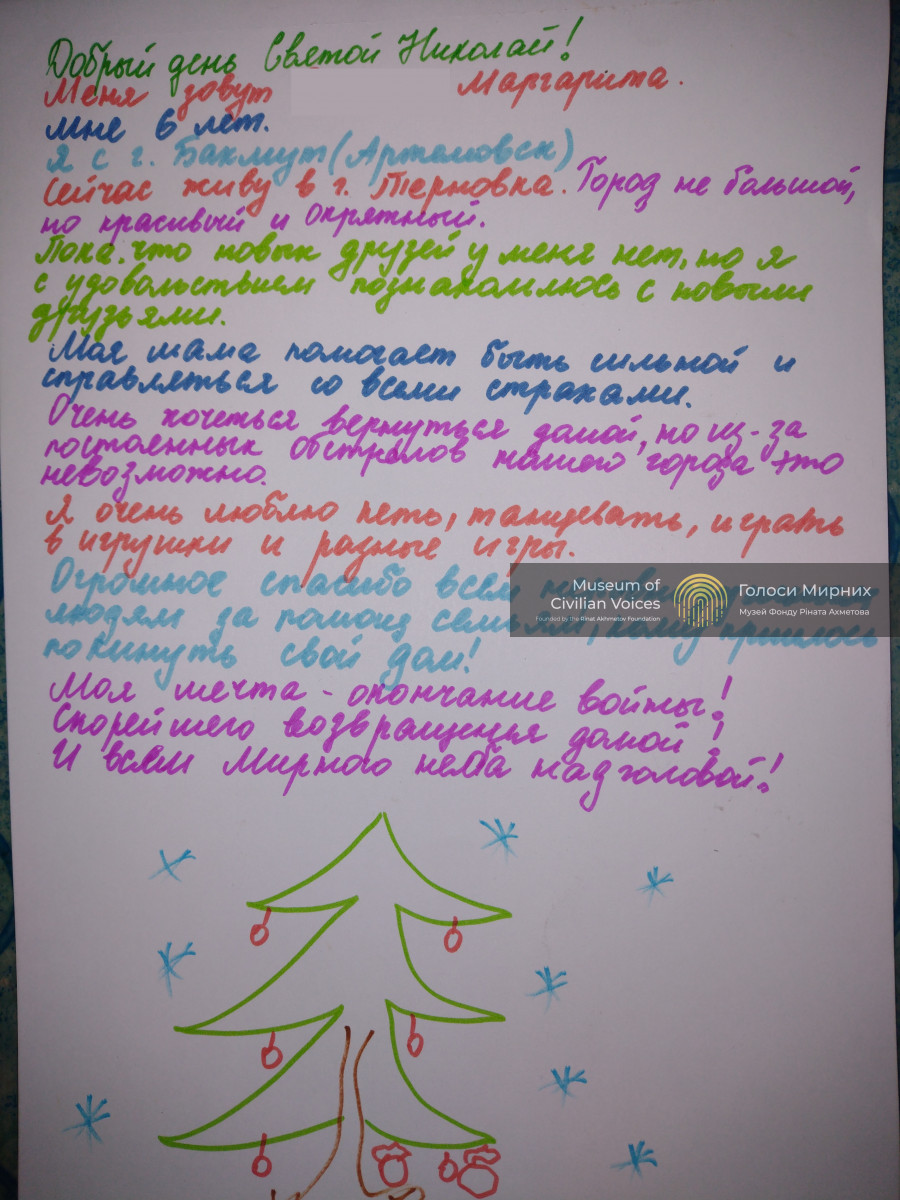 Добрый день Святой Николай!
Меня зовут Маргарита.
Мне 6 лет.
Я с г. Бахмут (Артемовск)
Сейчас живу в г. Терновка. Город не большой,
но красивый и опрятный.
Пока что новых друзей у меня нет, но я
с удовольствием познакомлюсь с новыми
друзьями.
Моя мама помогает быть сильной и
справляться со всеми страхами.
Очень хочеться вернуться домой, но из-за
постоенных обстрелов нашего города это
невозможно.
Я очень люблю петь, танцевать, играть
в игрушки и разные игры.
Огромное спасибо всем
людям за помощ кому пришлось
покинуть свой дом!
Моя мечта - окончание войны!
Скорейшего возвращенья домой!
И всем мирного неба над головой!
Museum of
Civilian Voices
Founded by the Rinat Akhmetov Foundation
Голоси Мирних
Музей Фонду Ріната Ахметова